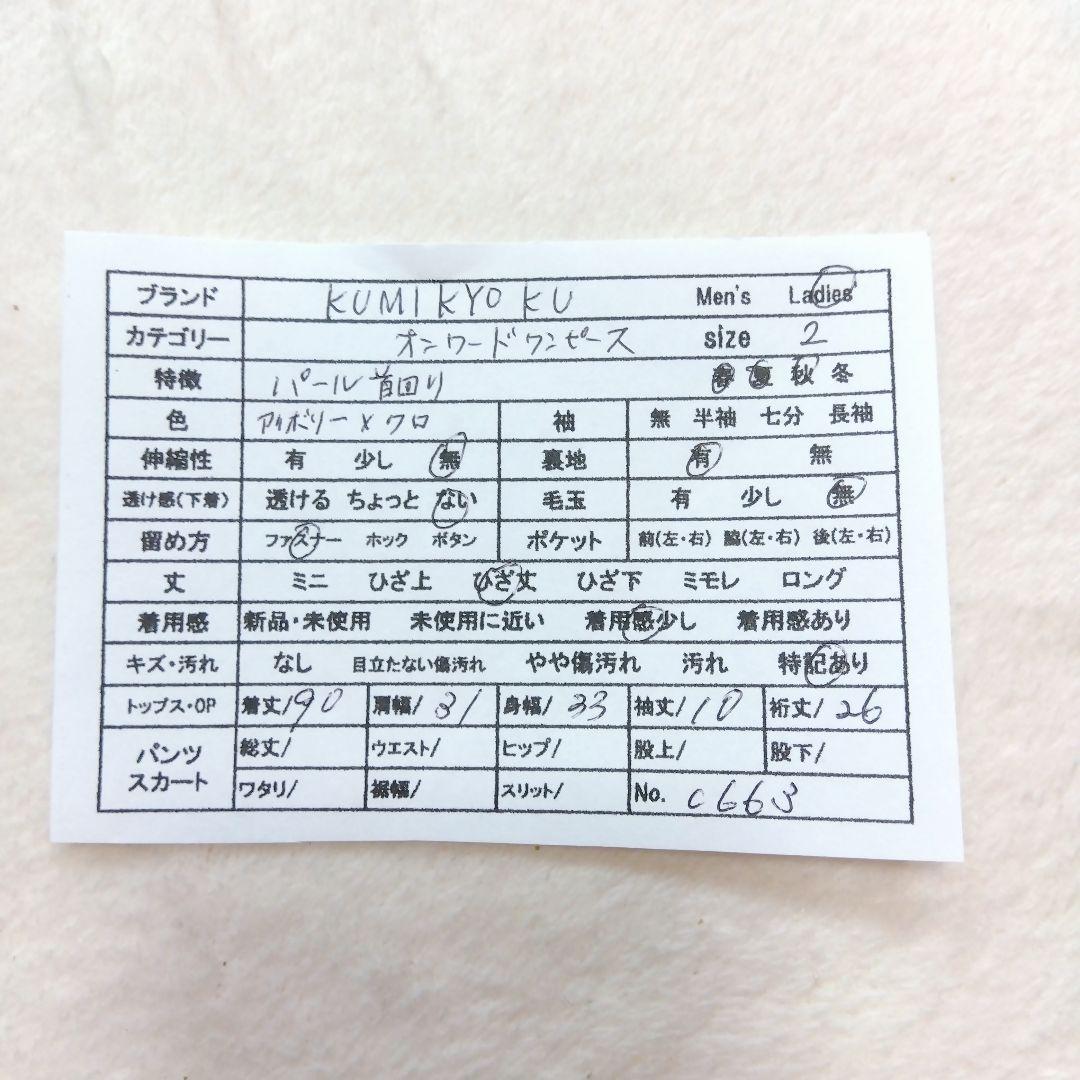 ブランド KUMIKYOKU Men's Ladies
カテゴリー オンワードワンピース size 2
特徴 パール首回り 春 夏 秋 冬
色 アイボリー×クロ 袖 無 半袖 七分 長袖
伸縮性 有 少し 無 裏地 有 無
透け感(下着) 透ける ちょっと ない 毛玉 有 少し 無
留め方 ファスナー ホック ボタン ポケット 前(左・右) 脇(左・右) 後(左・右)
丈 ミニ ひざ上 ひざ丈 ひざ下 ミモレ ロング
着用感 新品・未使用 未使用に近い 着用感少し 着用感あり
キズ・汚れ なし 目立たない傷汚れ やや傷汚れ 汚れ 特記あり
トップス・OP 着丈/90 肩幅/31 身幅/33 袖丈/10 裄丈/26
パンツ スカート 総丈/ ウエスト/ ヒップ/ 股上/ 股下/
ワタリ/ 裾幅/ スリット/ No. c663